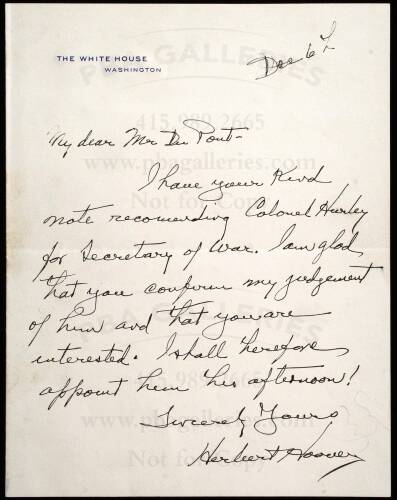 THE WHITE HOUSE
WASHINGTON
Dec 6
My dear Mr Du Pont-
I have your kind
note recomending Colonel Hurley
for Secretary of War. I am glad
that you confirm my judgement
of him and that you are
interested. I shall therefore
appoint him this afternoon!
Sincerely Yours
Herbert Hoover
PBA GALLERIES
415.989.2665
www.pbagalleries.com
Not for Copy
PBA GALLERIES
415.989.2665
www.pbagalleries.com
Not for Copy